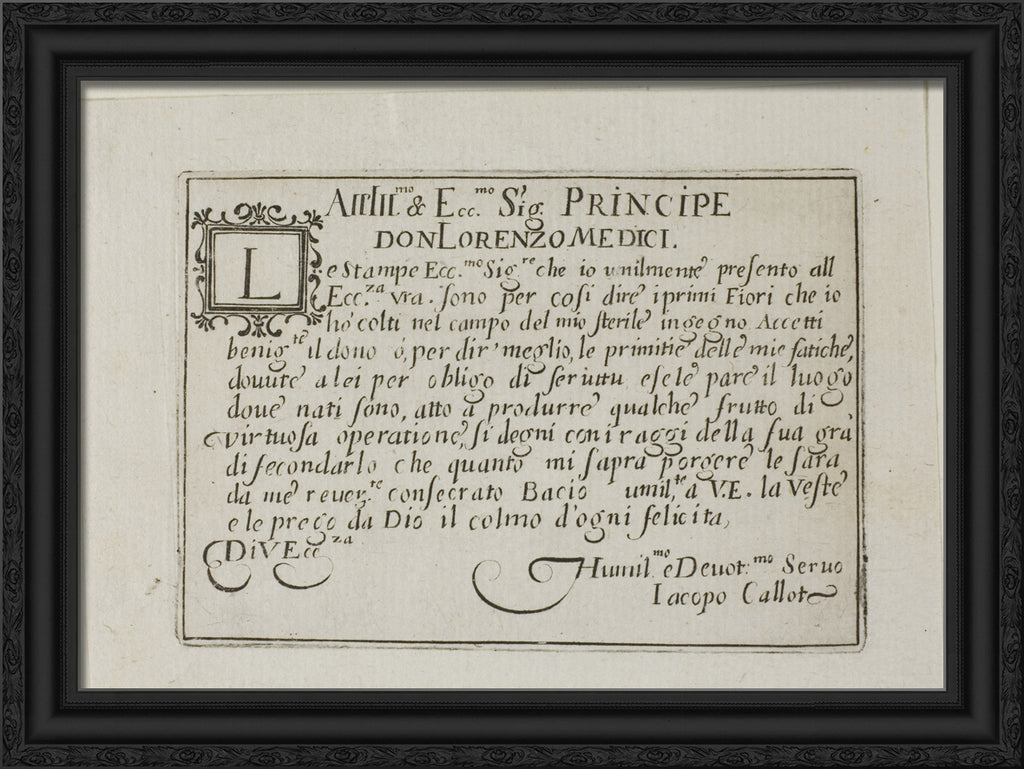 All Ill.mo & Ecc.mo Sig. PRINCIPE
DON LORENZO MEDICI.
Le Stampe Ecc.mo Sig.re che io vmilmente presento all
Ecc.za vra. sono per cosi dire i primi Fiori che io
hò colti nel campo del mio sterile ingegno Accetti
benig.te il dono ò, per dir' meglio, le primitie delle mie fatiche,
douute a lei per obligo di seruitu e se le pare il luogo
doue nati sono, atto a produrre qualche frutto di
virtuosa operatione, si degni con i raggi della sua gra
di fecondarlo che quanto mi sapra porgere le sara
da me reuer.te consecrato Bacio umil.te a V.E. la Veste
e le prego da Dio il colmo d'ogni felicita,
Di V Ecc.za
Humil.mo e Deuot.mo Seruo
Iacopo Callot